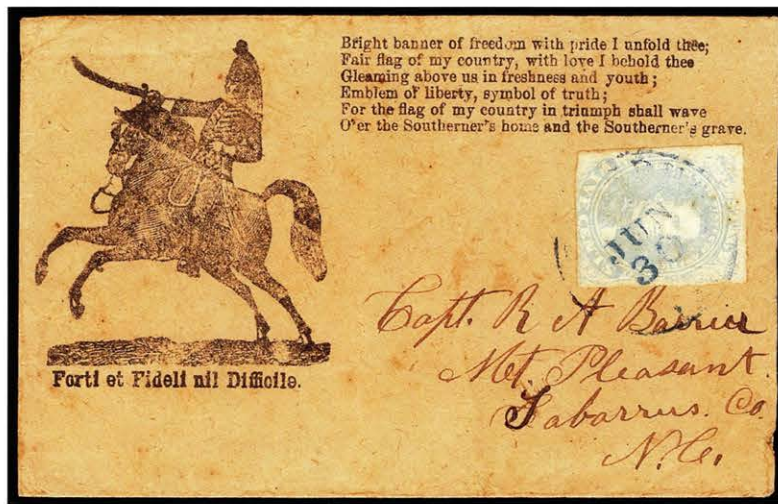 Bright banner of freedom with pride I unfold thee;
Fair flag of my country, with love I behold thee
Gleaming above us in freshness and youth;
Emblem of liberty, symbol of truth;
For the flag of my country in triumph shall wave
O'er the Southerner's home and the Southerner's grave.
JUN
30
Capt. R A Barrier
Mt. Pleasant
Cabarrus. Co.
N.C.
Forti et Fideli nil Difficile.